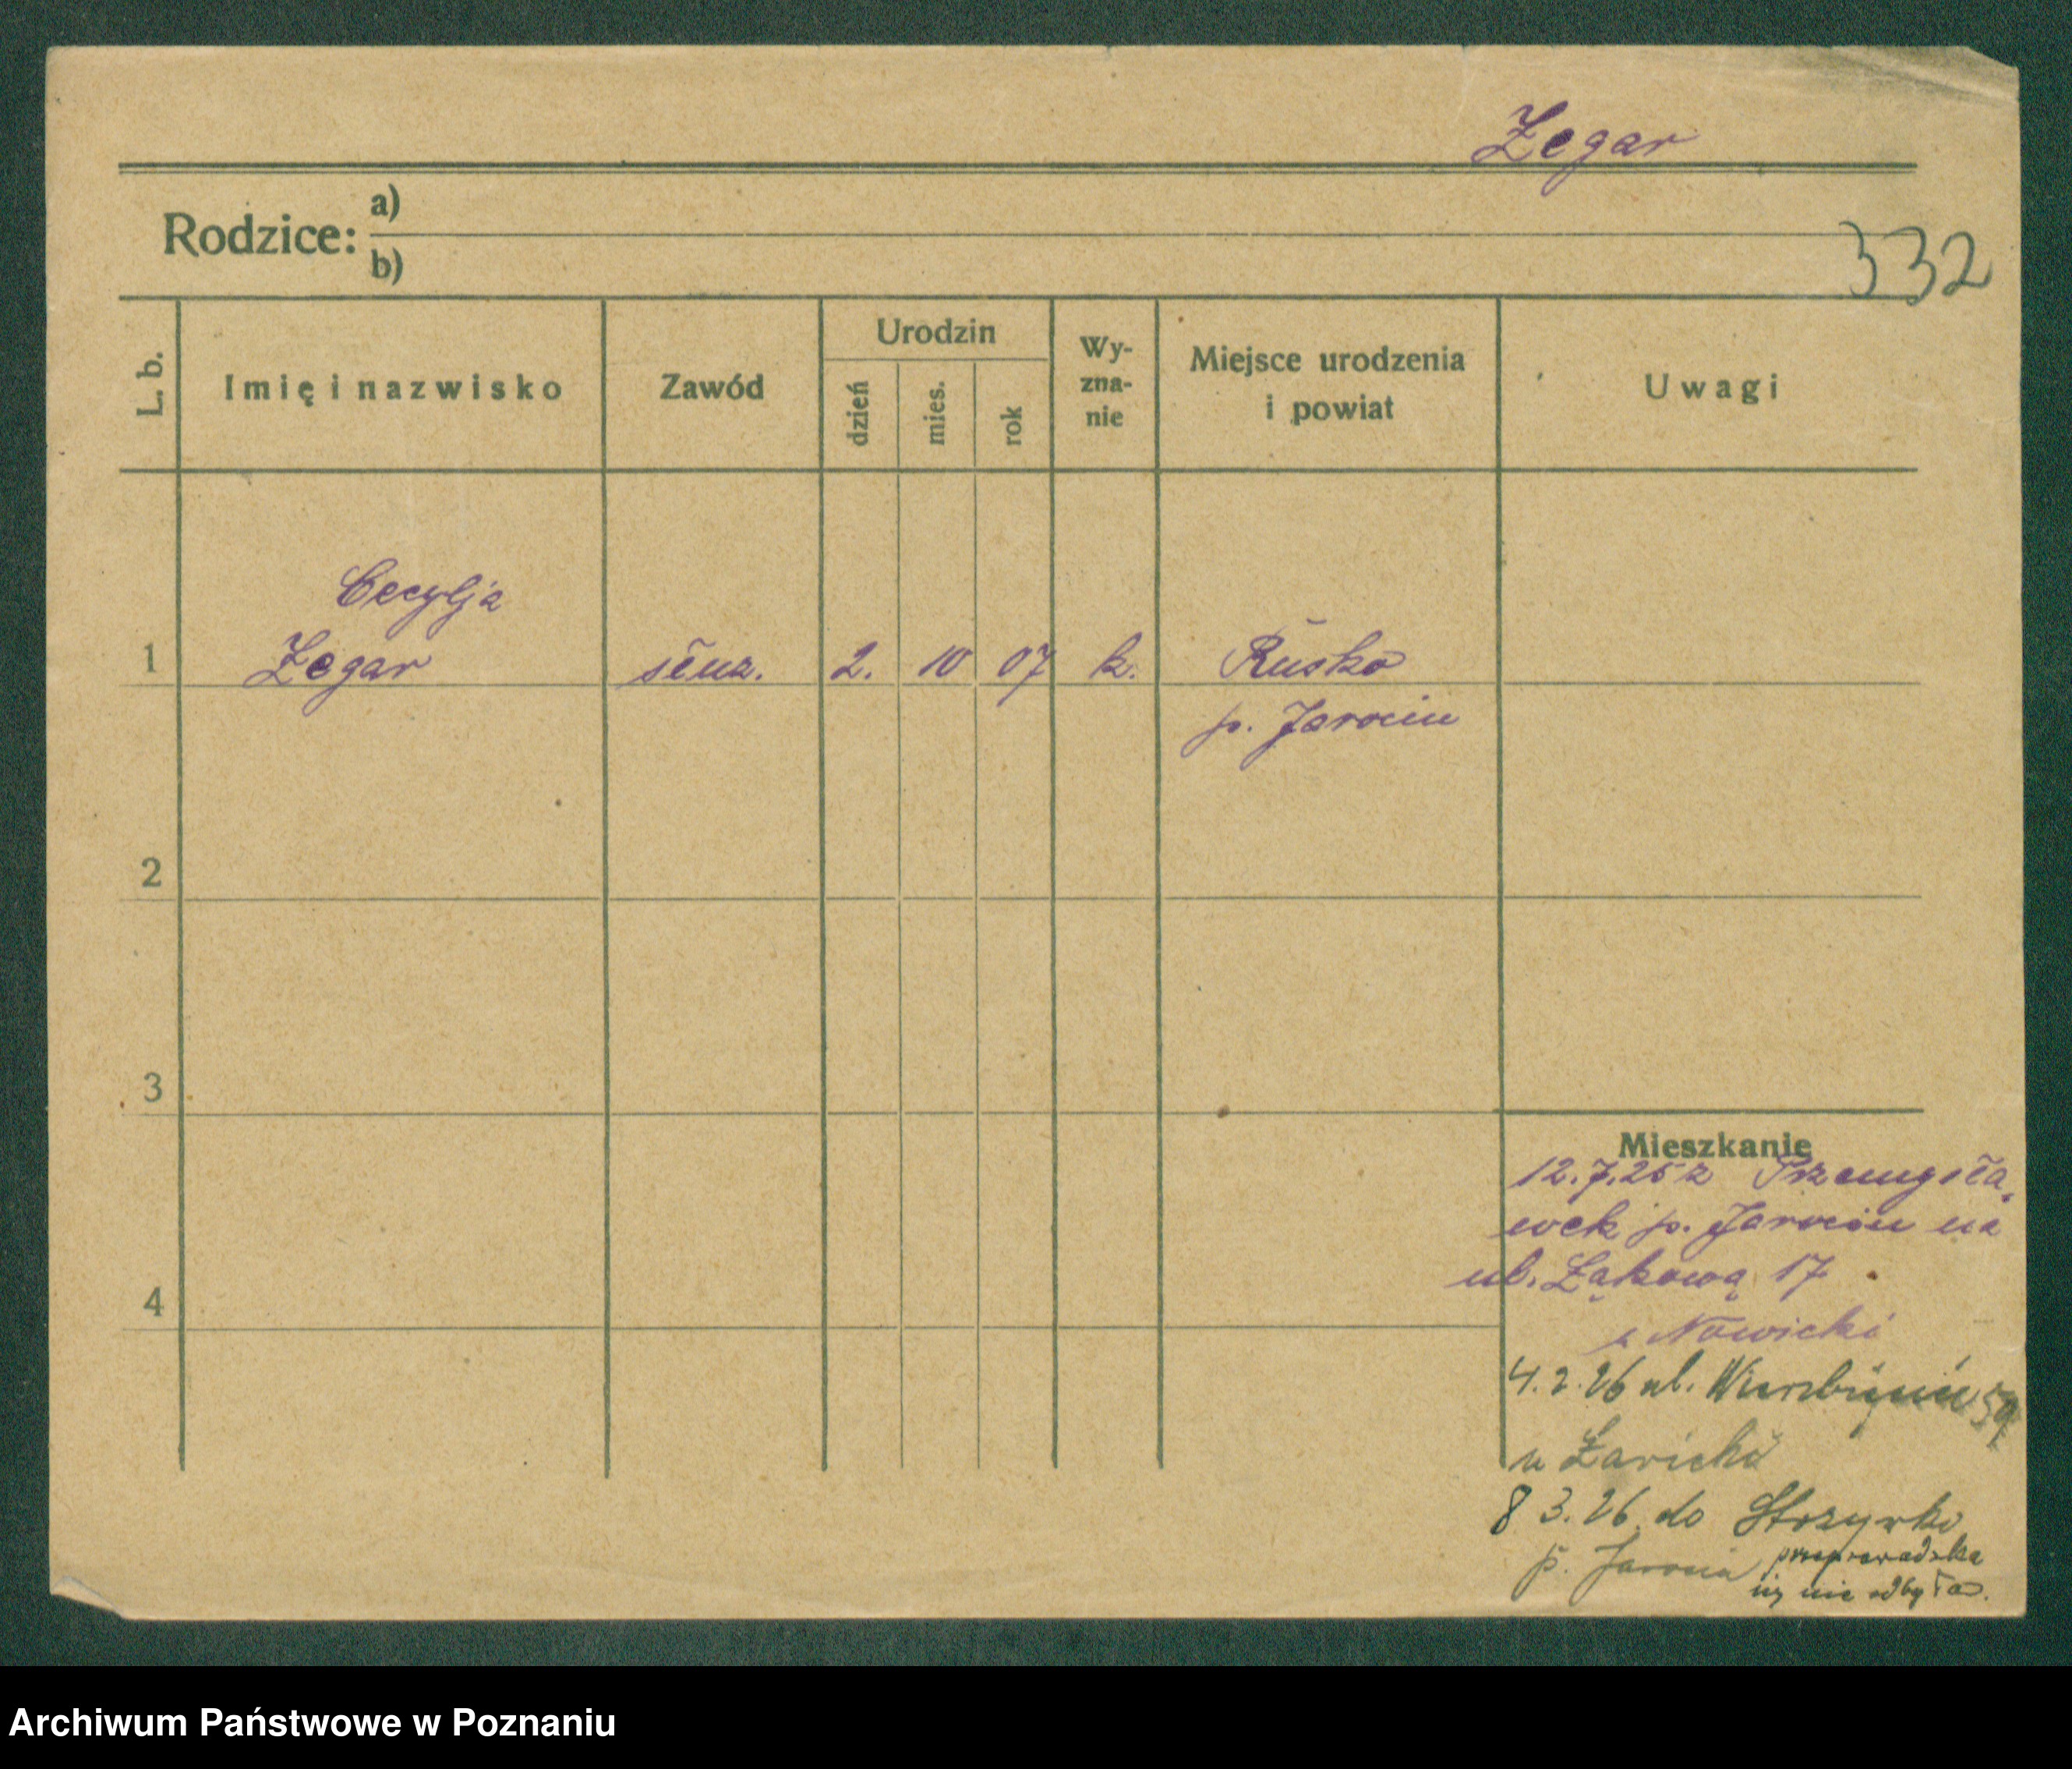 Żegar
Rodzice: a)
b)
332
L. b.
Imię i nazwisko
Zawód
Urodzin
dzień
mies.
rok
Wy-
zna-
nie
Miejsce urodzenia
i powiat
Uwagi
Cecylja
1 Żegar służ. 2. 10 07 k. Rusko
p. Jarocin
2
3
4
Mieszkanie
12.7.25 z Przemysła-
wek p. Jarocin na
ul. Łąkową 17
u Nowicki
4.2.26 ul. 59
u
8 3.26 do
p. Jarocin przeprowadzka
nie odbyła
Archiwum Państwowe w Poznaniu